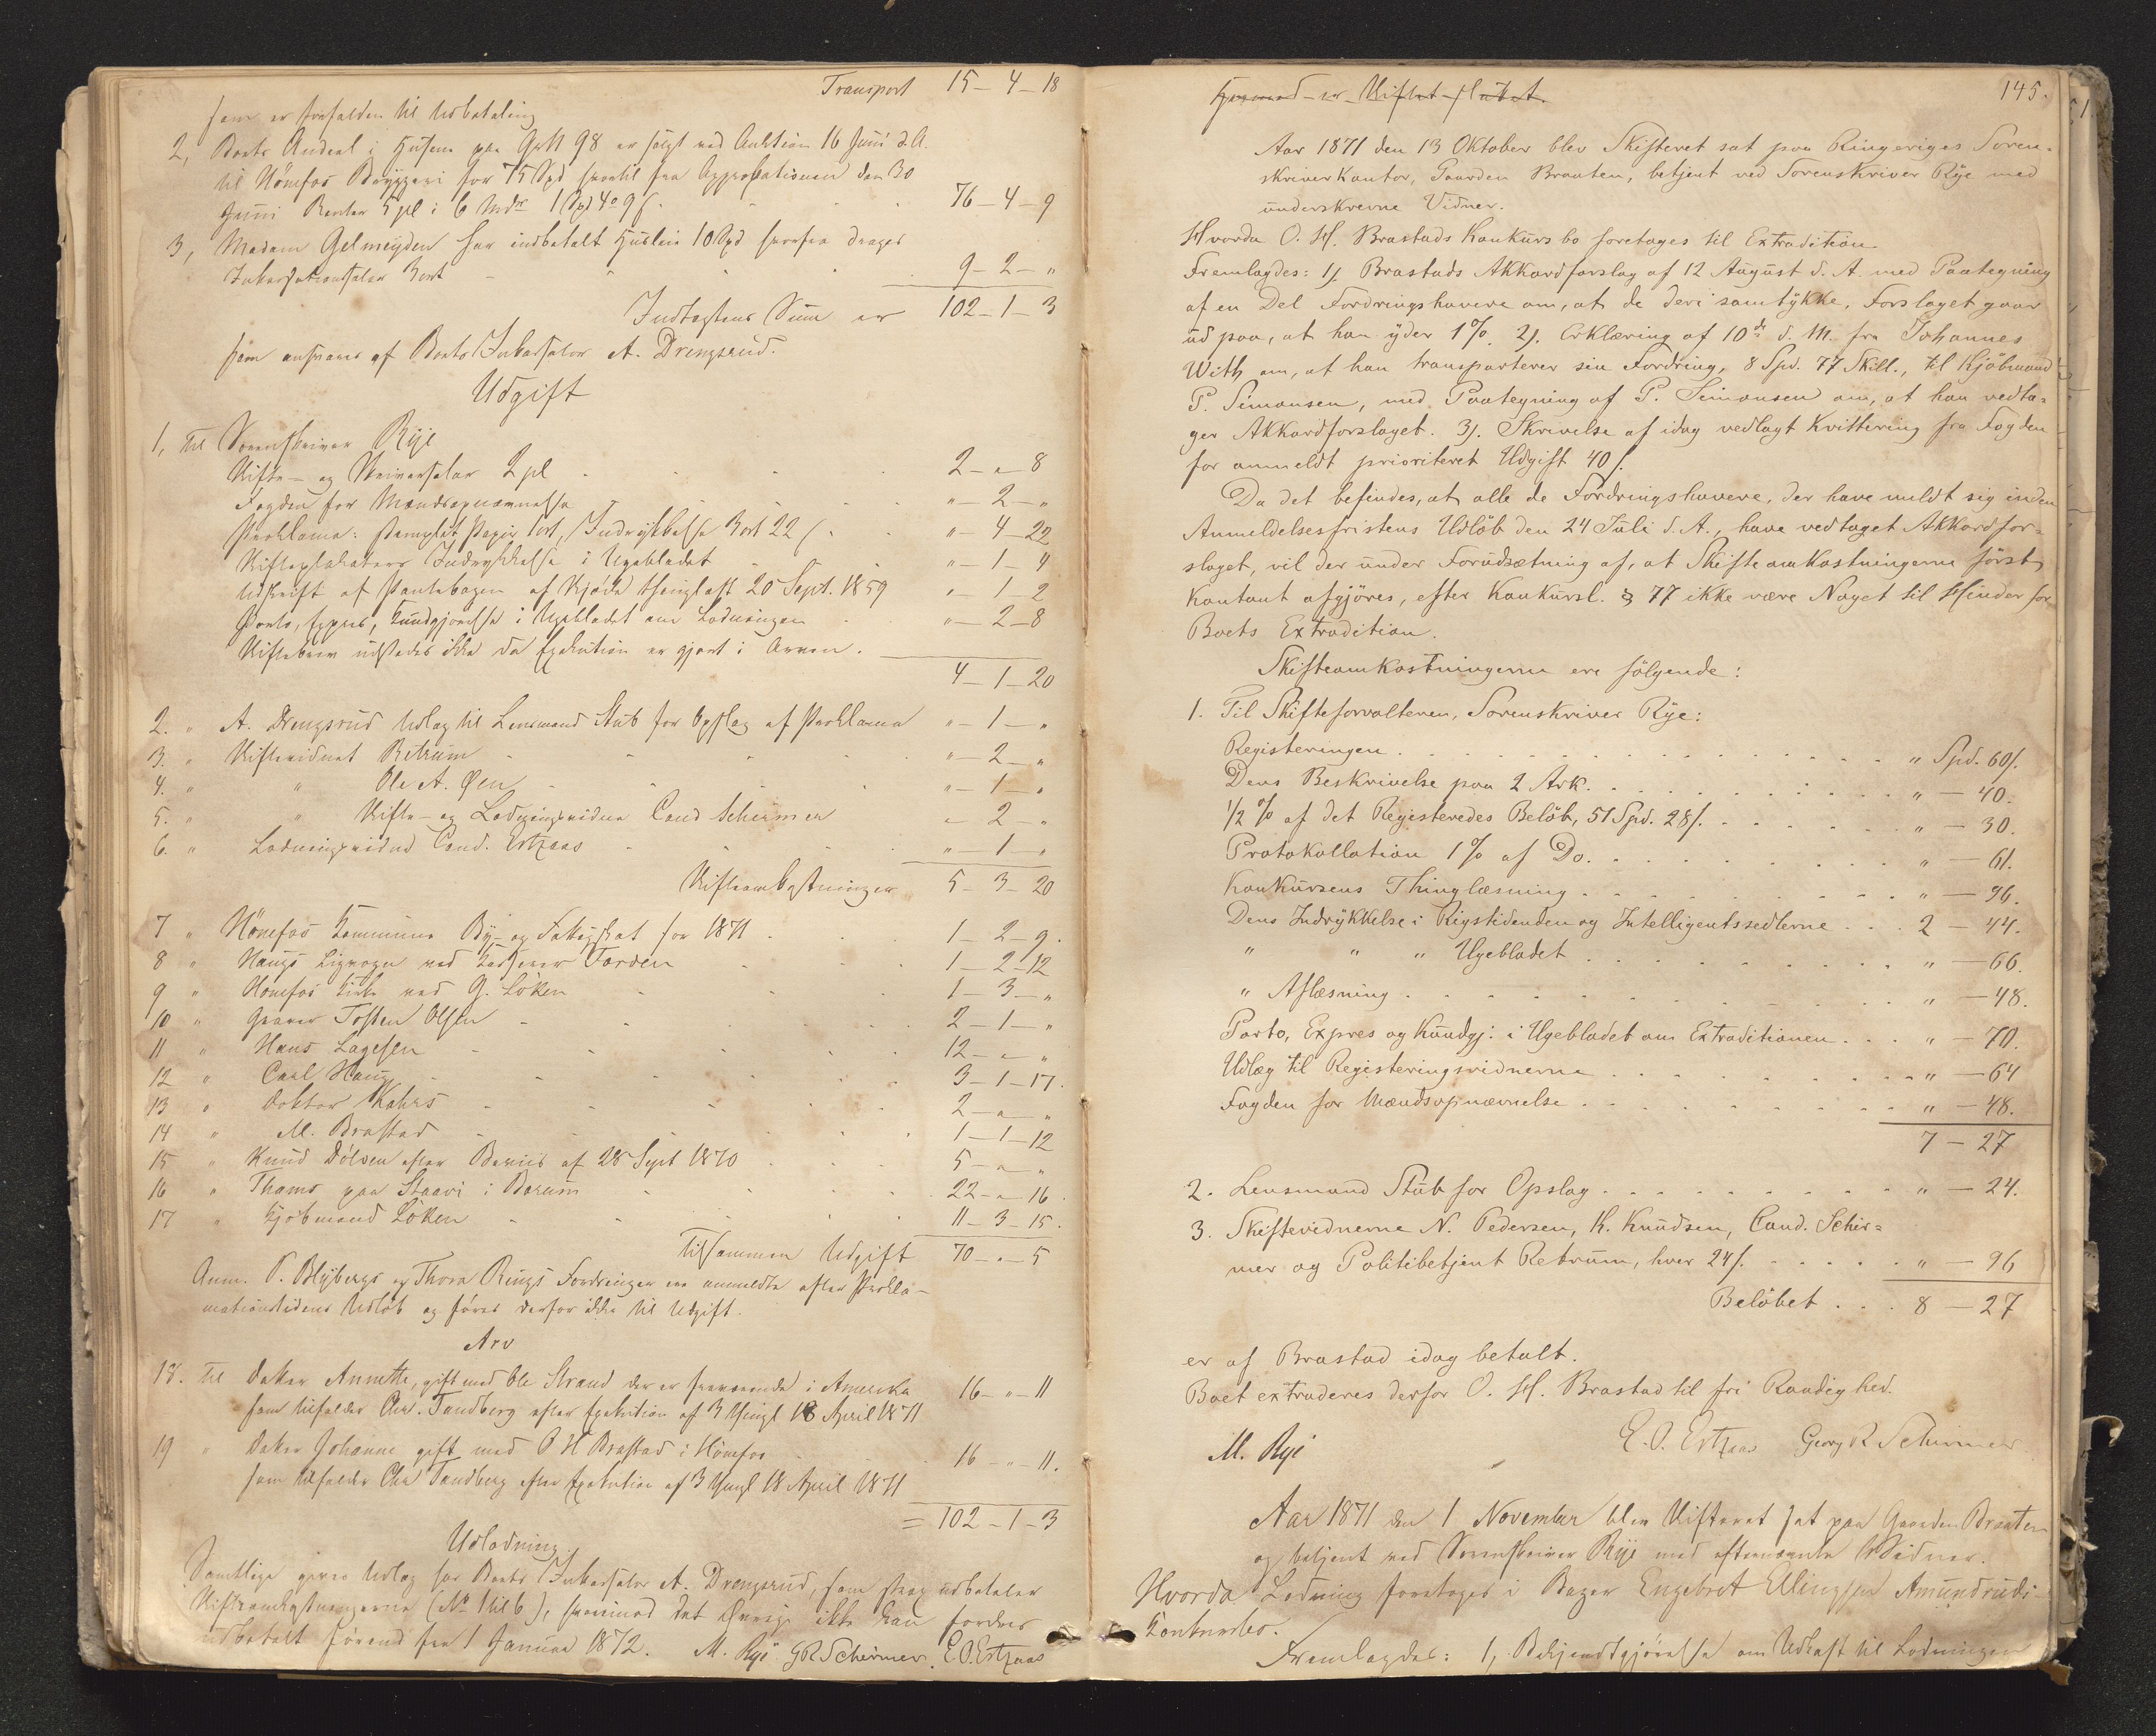 Transport 15 – 4 – 18
som er forfalden til Udbetaling
2, Boets Andeel i Husene paa Grk 98 er solgt ved Auktion 16 Juni d. A.
til Hönefos Bryggeri for 75 Spd hvortil fra Approbationen den 30
Juni Renter 5 pC i 6 Mdr 1 Spd 4 o 9 s. 76 – 4 – 9
3, Madam Gelmeyden har indbetalt Husleie 10 Spd hvorfra drages
Inkassationssalær 3 ort 9 – 2 – "
Indtægtens Sum er 102 – 1 – 3
som ansvares af Boets Inkassator A. Drengsrud.
Udgift
1, Til Sorenskriver Rye
Skifte- og Skriversalær 2 pC 2 – " – 8
Fogden for Mændsopnævnelse " – 2 – "
Proklama: stemplet Papir 1 ort, Indrykkelse 3 ort 22 s " – 4 – 22
Skifteplakatens Indrykkelse i Ugebladet " – 1 – 4
Udskrift af Pantebogen af Skjøde thinglæst 20 Sept. 1859 " – 1 – 2
Porto, Expres, Kundgjørelse i Ugebladet om Lodningen " – 2 – 8
Skiftebrev udstedes ikke da Exekution er gjort i Arven.
4 – 1 – 20
2. " A. Drengsrud Udlæg til Lensmand Stub for Opslag af Proklama " – 1 – "
3. " Skiftevidnet Retrum " – 2 – "
4. " " Ole A. Øen " – 1 – "
5. " " Skifte- og Lodningsvidne Cand Schirmer " – 2 – "
6. " Lodningsvidnet Cand. Ertzaas " – 1 – "
Skifteomkostninger 5 – 3 – 20
7 " Hönefos Kommune By- og Fattigskat for 1871 1 – 2 – 9.
8 " Haugs Ligvogn ved Kasserer Torden 1 – 2 – 12
9 " Hönefos Kirke ved G. Löken 1 – 3 – "
10 " Graver Tosten Olsen 2 – 1 – "
11 " Hans Lagesen 12 – " – "
12 " Carl Haug 3 – 1 – 17.
13 " Doktor Kahrs 2 – " – "
14 " M. Brastad 1 – 1 – 12
15 " Knud Dölven efter Beviis af 28 Sept 1870 5 – " – "
16 " Thams paa Staavi i Barum 22 – " – 16.
17 " Kjöbmand Löken 11 – 3 – 15.
Tilsammen Udgift 70 – " – 5
Anm. P. Blybergs og Thora Rings Fordringer ere anmeldte efter Prokla-
mationstidens Udlöb og föres derfor ikke til Udgift.
Arv
18. Til Datter Annette, gift med Ole Strand der er fraværende i Amerika 16 – " – 11
som tilfalder Chr. Tandberg efter Exekution af 3 thingl 18 April 1871
19 " Datter Johanne gift med O H Brastad i Hönefos 16 – " – 11.
som tilfalder Chr Tandberg efter Exekution af 3 thingl 18 April 1871
= 102 – 1 – 3
Udlodning.
Samtlige gives Udlæg hos Boets Inkassator A. Drengsrud, som strax udbetaler
Skifteomkostningerne (No 1 til 6), hvorimod det Øvrige ikke kan fordres
udbetalt förend fra 1 Januar 1872. M. Rye G R Schirmer. E. O. Ertzaas
145.
Hermed er Skiftet sluttet.
Aar 1871 den 13 Oktober blev Skifteret sat paa Ringeriges Soren-
skriverkontor, Gaarden Braaten, betjent ved Sorenskriver Rye med
underskrevne Vidner.
Hvorda O. H. Brastads Konkursbo foretages til Extradition
Fremlagdes: 1). Brastads Akkordforslag af 12 August d. A. med Paategning
af en Del Fordringshavere om, at de deri samtykke. Forslaget gaar
ud paa, at han yder 1 %. 2). Erklæring af 10de d. M. fra Johannes
With om, at han transporterer sin Fordring, 8 Spd. 77 Skill., til Kjöbmand
P. Simonsen, med Paategning af P. Simonsen om, at han vedta-
ger Akkordforslaget. 3). Skrivelse af idag vedlagt Kvittering fra Fogden
for anmeldt prioriteret Udgift 40 s.
Da det befindes, at alle de Fordringshavere, der have meldt sig inden
Anmeldelsesfristens Udlöb den 24 Juli d. A., have vedtaget Akkordfor-
slaget, vil der under Forudsætning af, at Skifteomkostningerne först
kontant afgjöres, efter Konkursl. § 77 ikke være Noget til Hinder for
Boets Extradition.
Skifteomkostningerne ere fölgende:
1. Til Skifteforvalteren, Sorenskriver Rye:
Registeringen . . . " Spd. 60 s.
Dens Beskrivelse paa 2 Ark . . . " – 40.
1/2 % af det Registeredes Belöb, 51 Spd. 28 s. . . . " – 30.
Protokollation 1 % af Do. . . . " – 61.
Konkursens Thinglæsning . . . " – 96.
Dens Indrykkelse i Rigstidenden og Intelligentssedlerne . . . 2 – 44.
" " " Ugebladet . . . " – 66.
" Aflæsning . . . " – 48.
Porto, Expres og Kundgj: i Ugebladet om Extraditionen . . . " – 70.
Udlæg til Registeringsvidnerne . . . " – 64
Fogden for Mændsopnævnelse . . . " – 48.
7 – 27
2. Lensmand Stub for Opslag . . . " – 24.
3. Skiftevidnerne N. Pedersen, K. Knudsen, Cand. Schir-
mer og Politibetjent Retrum, hver 24 s. . . . " – 96
Belöbet . . . 8 – 27
er af Brastad idag betalt.
Boet extraderes derfor O. H. Brastad til fri Raadighed.
M. Rye E. O. Ertzaas Georg R Schirmer
Aar 1871 den 1 November blev Skifteret sat paa Gaarden Braaten
og betjent ved Sorenskriver Rye med efternævnte Vidner.
Hvorda Lodning foretages i Bager Engebret Ellingsen Amundruds
Konkursbo.
Fremlagdes: 1, Bekjendtgjörelse om Udkast til Lodningen